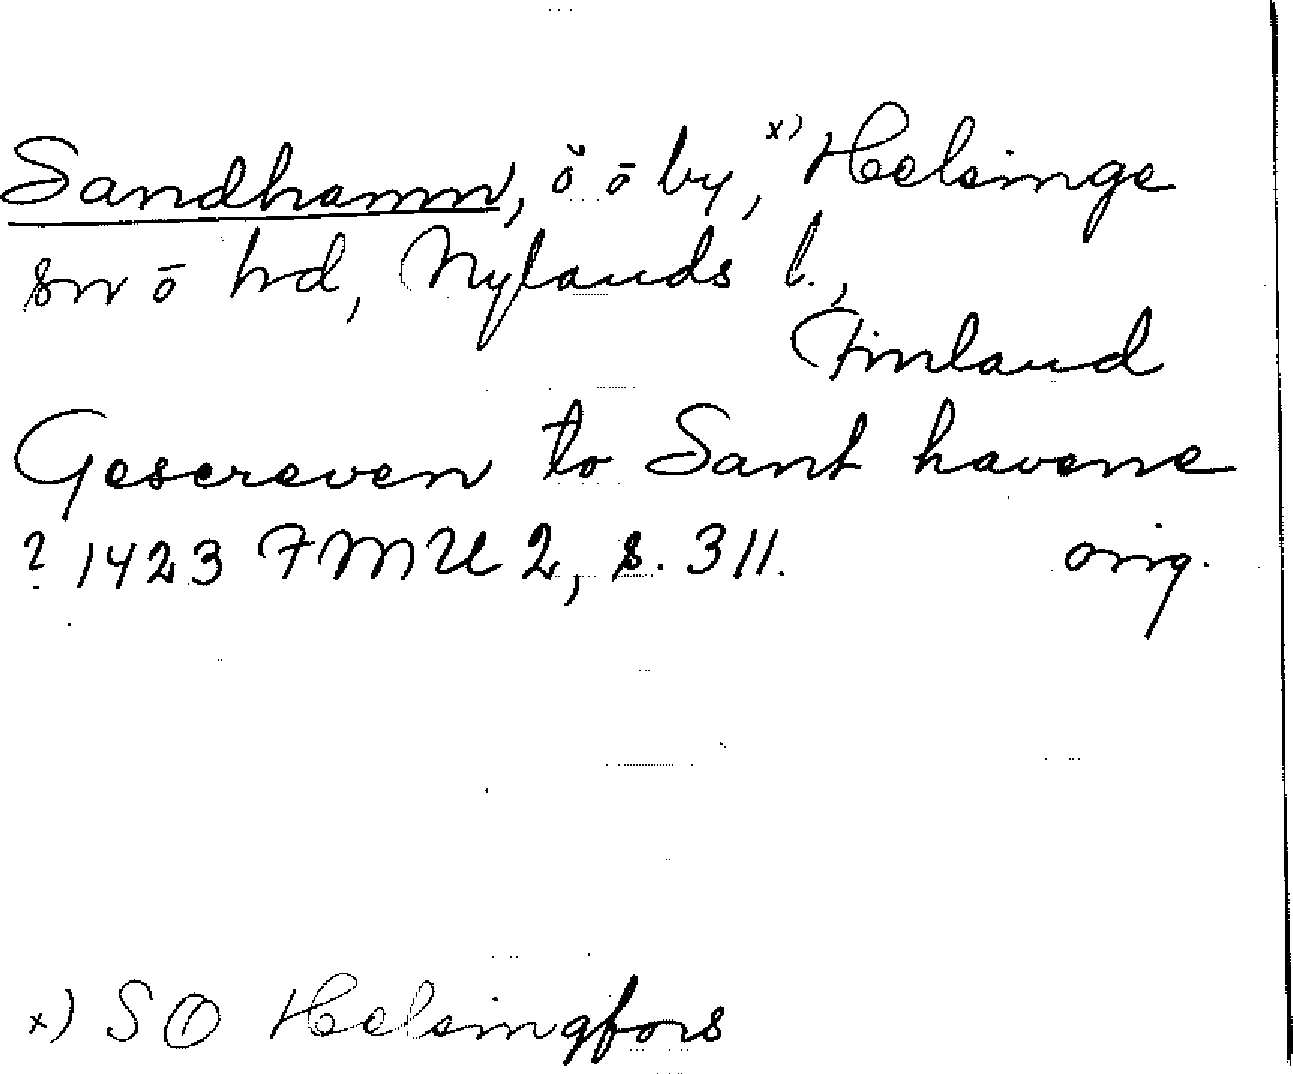 Sandhamn, ö o by, x) Helsinge
sn o hd, Nylands l.,
Finland
Gescreven to Sant havene
? 1423 FMU 2, s. 311. orig.
x) SO Helsingfors